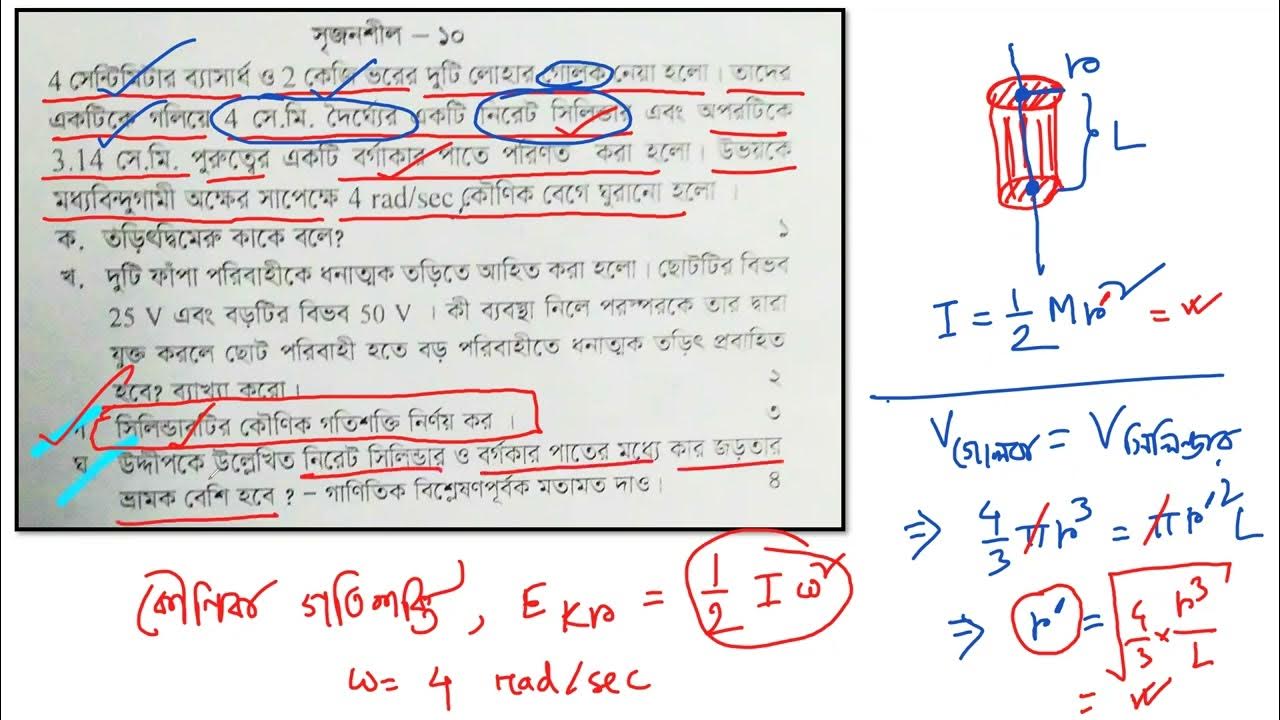 সৃজনশীল – ১০
4 সেন্টিমিটার ব্যাসার্ধ ও 2 কেজি ভরের দুটি লোহার গোলক নেয়া হলো। তাদের
একটিকে গলিয়ে 4 সে.মি. দৈর্ঘ্যের একটি নিরেট সিলিন্ডার এবং অপরটিকে
3.14 সে.মি. পুরুত্বের একটি বর্গাকার পাতে পরিণত করা হলো। উভয়কে
মধ্যবিন্দুগামী অক্ষের সাপেক্ষে 4 rad/sec কৌণিক বেগে ঘুরানো হলো ।
ক. তড়িৎদ্বিমেরু কাকে বলে? ১
খ. দুটি ফাঁপা পরিবাহীকে ধনাত্মক তড়িতে আহিত করা হলো। ছোটটির বিভব
25 V এবং বড়টির বিভব 50 V । কী ব্যবস্থা নিলে পরস্পরকে তার দ্বারা
যুক্ত করলে ছোট পরিবাহী হতে বড় পরিবাহীতে ধনাত্মক তড়িৎ প্রবাহিত
হবে? ব্যাখ্যা করো। ২
গ. সিলিন্ডারটির কৌণিক গতিশক্তি নির্ণয় কর । ৩
ঘ উদ্দীপকে উল্লেখিত নিরেট সিলিন্ডার ও বর্গকার পাতের মধ্যে কার জড়তার
ভ্রামক বেশি হবে ? – গাণিতিক বিশ্লেষণপূর্বক মতামত দাও। ৪
কৌনিক গতিশক্তি, E Kr = 1/2 I ω²
ω = 4 rad/sec
r
L
I = 1/2 Mr'² =
V গোলক = V সিলিন্ডার
⇒ 4/3 πr³ = πr'² L
⇒ r' = √(4/3 × r³/L)
=